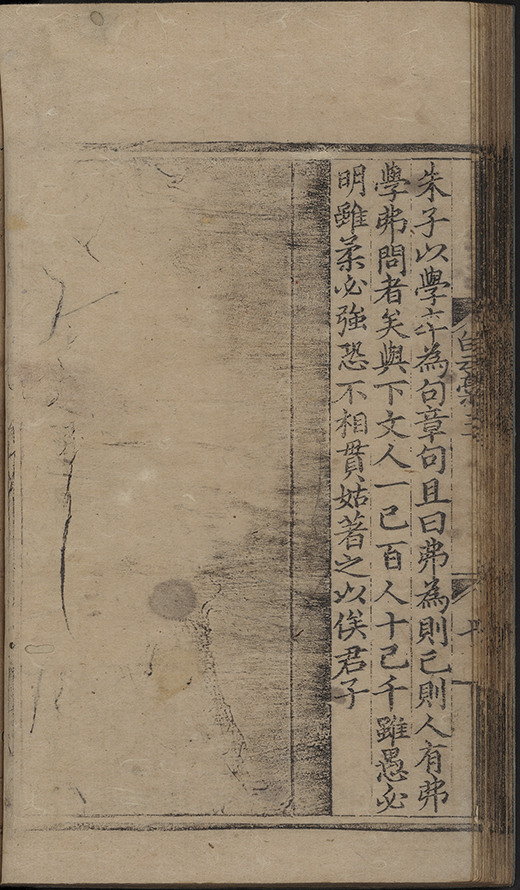 朱子以學卒為句章句且曰弗為則已則人有弗
學弗問者矣與下文人一已百人十已千雖愚必
明雖柔必強恐不相貫姑著之以俟君子